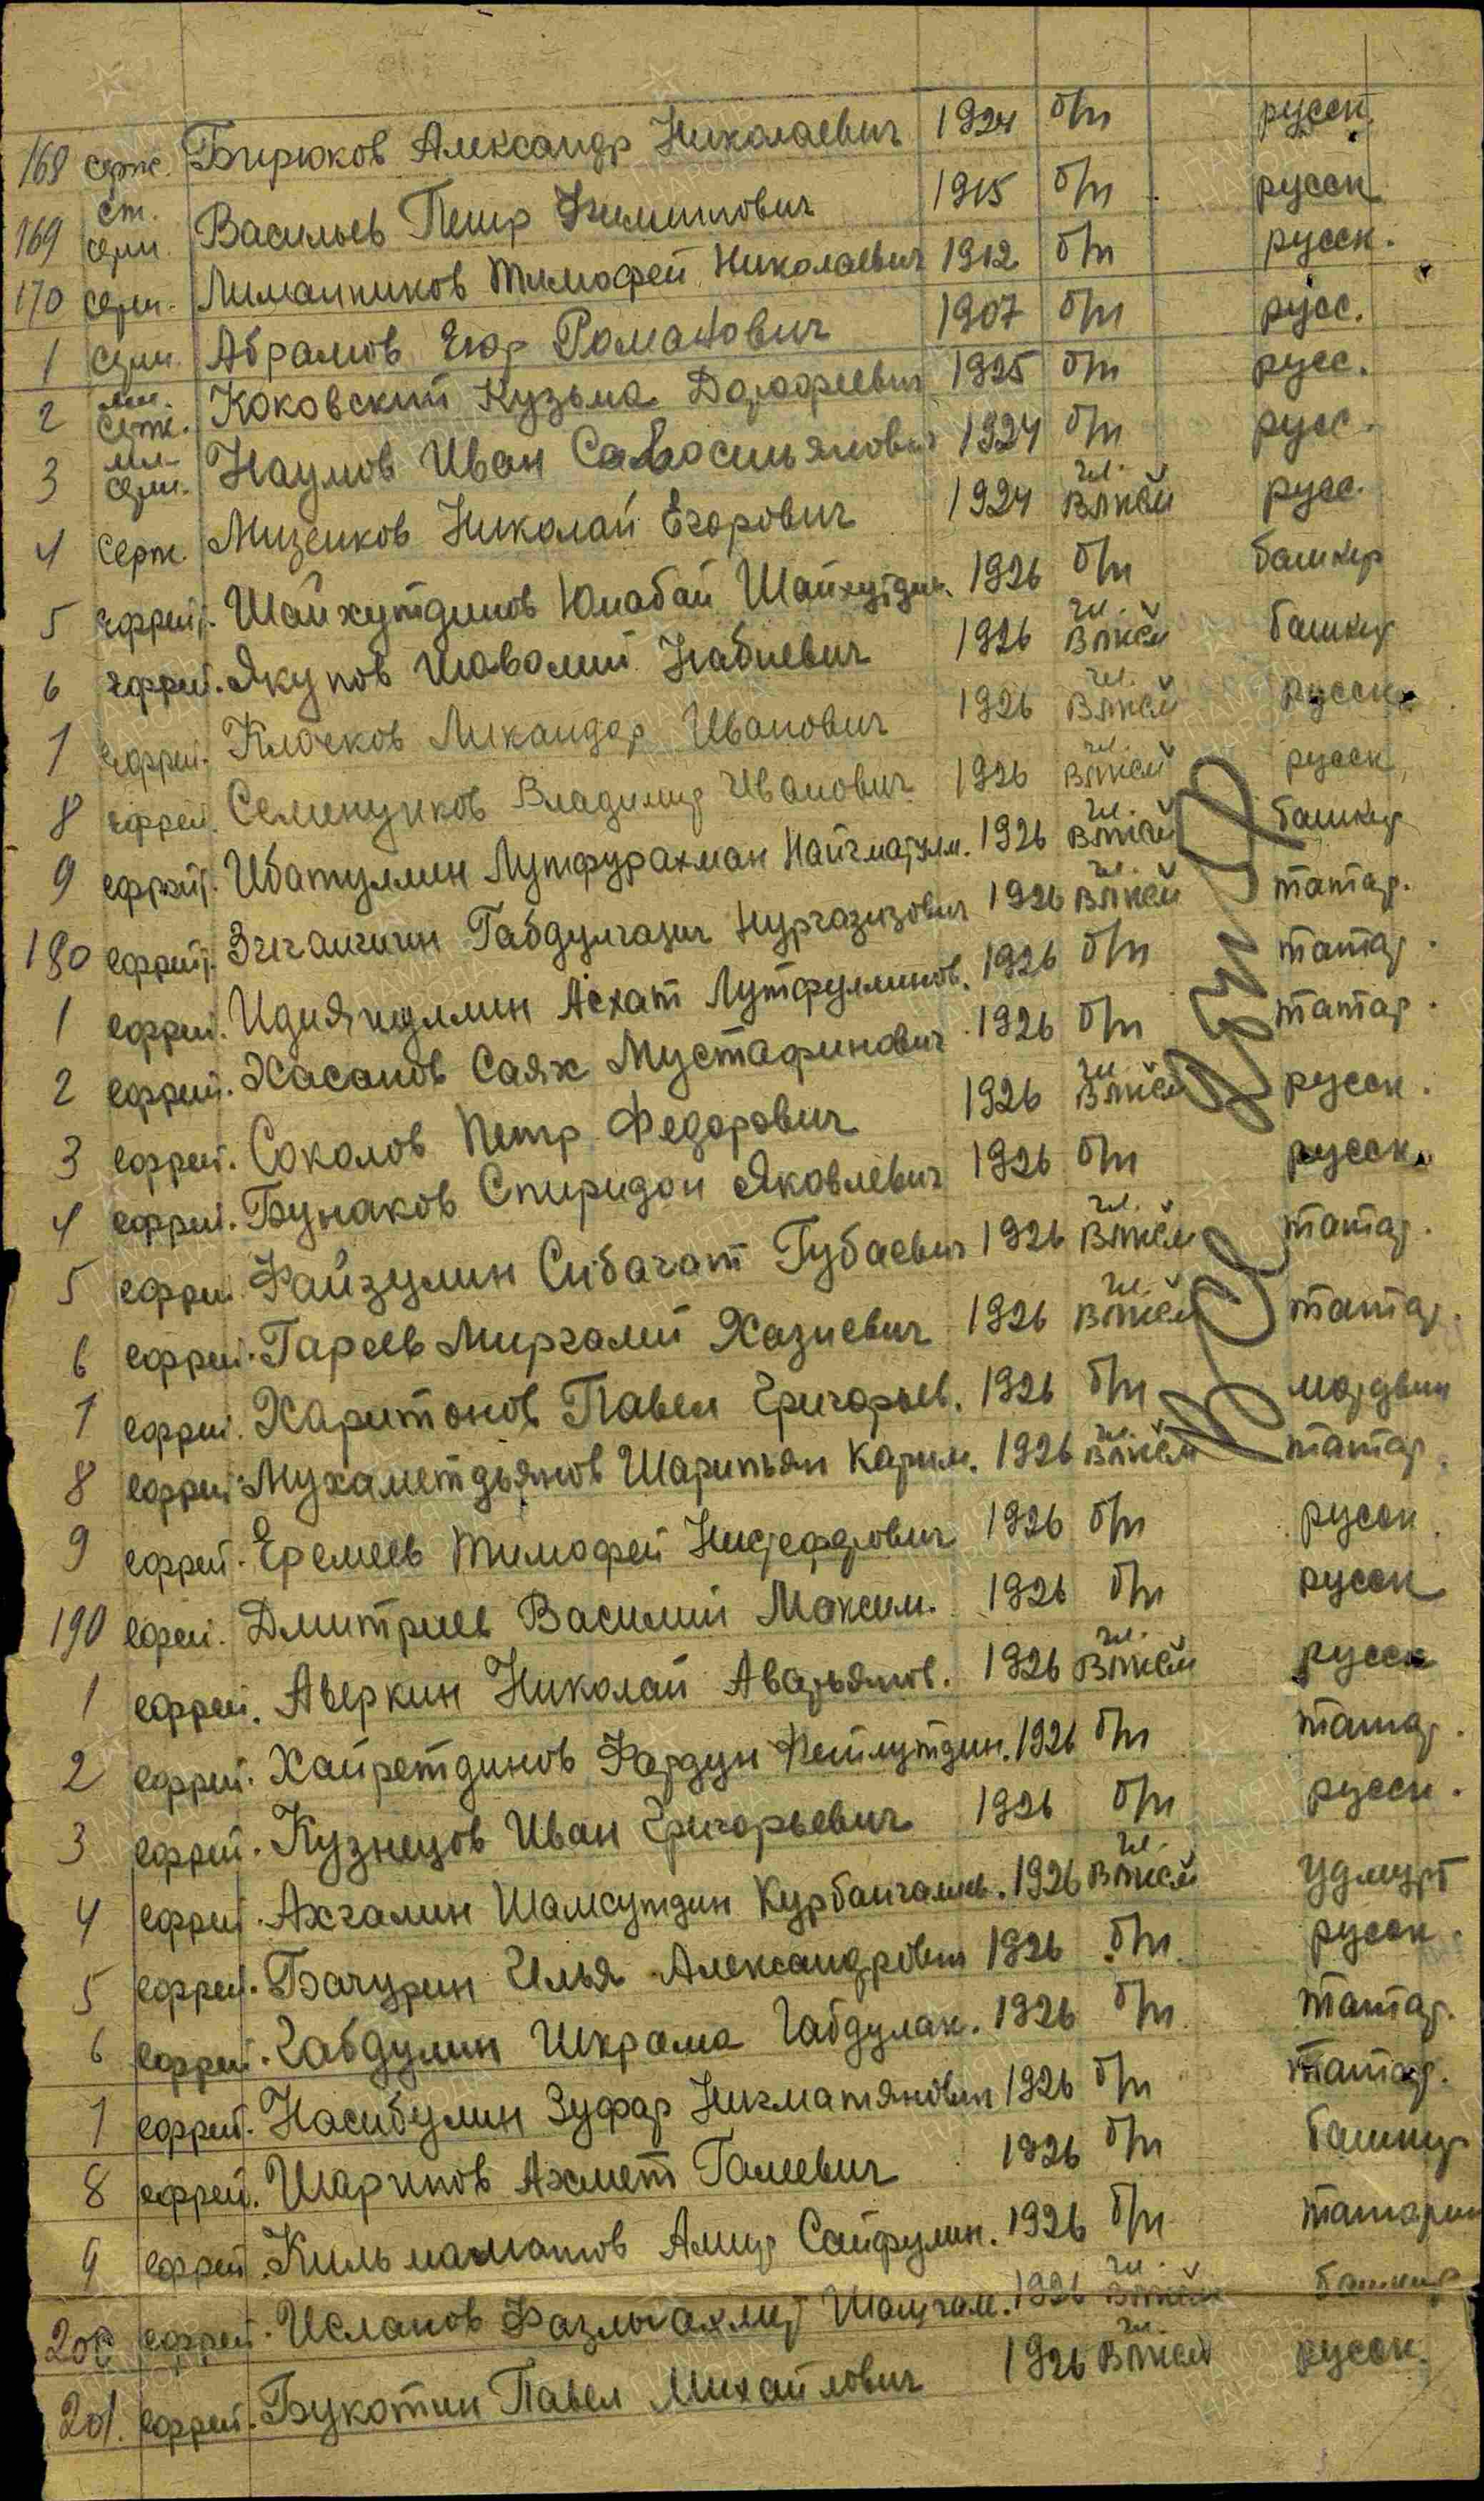 168 серж. Бирюков Александр Николаевич 1924 б/п русск.
169 ст. серж. Васильев Петр 1915 б/п русск
170 серж. Лиманников Тимофей Николаевич 1912 б/п русск.
1 серж. Абрамов Егор Романович 1907 б/п русс.
2 мл. серж. Коковский Кузьма Дорофеевич 1925 б/п русс.
3 мл. серж. Наумов Иван 1924 б/п русс.
4 Серж. Мизенков Николай Егорович 1924 чл. ВЛКСМ русс.
5 ефрейт. Шайхутдинов Юлабай Шайхутдин. 1926 б/п башкир
6 ефрей. Якупов Набиевич 1926 чл. ВЛКСМ башкир
7 ефрей. Клочков Ликандр Иванович 1926 чл. ВЛКСМ русск.
8 ефрей. Семенчуков Владимир Иванович 1926 чл. ВЛКСМ русск.
9 ефрейт. Ибатуллин Лутфурахман 1926 чл. ВЛКСМ башкир
180 ефрейт. Зиганшин Нургазизович 1926 чл. ВЛКСМ татар.
1 ефрей. Асхат Лутфуллинов. 1926 б/п татар.
2 ефрей. Хасанов Саях Мустафинович 1926 б/п татар.
3 ефрей. Соколов Петр Федорович 1926 чл. ВЛКСМ русск.
4 ефрей. Бунаков Спиридон Яковлевич 1926 б/п русск.
5 ефрей. Файзулин Сибагат Губаевич 1926 чл. ВЛКСМ татар.
6 ефрей. Гареев Миргалий Хазиевич 1926 чл. ВЛКСМ татар.
7 ефрей. Харитонов Павел Григорьев. 1926 б/п мордвин
8 ефрей. Мухаметдьянов Шарипьян Карим. 1926 чл. ВЛКСМ татар.
9 ефрей. Еремеев Тимофей 1926 б/п русск.
190 ефрей. Дмитриев Василий Максим. 1926 б/п русск
1 ефрей. Аверкин Николай Аварьянов. 1926 чл. ВЛКСМ русск
2 ефрей. Хайретдинов 1926 б/п татар.
3 ефрей. Кузнецов Иван Григорьевич 1926 б/п русск.
4 ефрей. Ахгалин Шамсутдин Курбангалиев. 1926 чл. ВЛКСМ удмурт
5 ефрей. Бачурин Илья Александрович 1926 б/п русск.
6 ефрей. Габдулин Шкрама Габдулак. 1926 б/п татар.
7 ефрей. Насибулин Зуфар Нигматянович 1926 б/п татар.
8 ефрей. Шарипов Ахмет Галеевич 1926 б/п башкир
9 ефрей. Кильмаматов Амир Сайфулин. 1926 б/п татарин
200 ефрей. Исламов 1926 чл. ВЛКСМ башкир
201. ефрей. Букотин Павел Михайлович 1926 чл. ВЛКСМ русск.